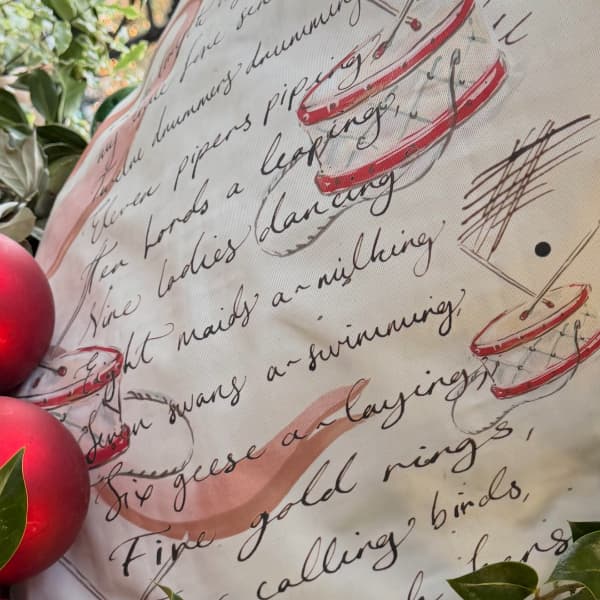 my true love sent
Twelve drummers drumming
Eleven pipers piping,
Ten lords a leaping,
Nine ladies dancing
Eight maids a-milking
Seven swans a-swimming,
Six geese a-laying,
Five gold rings,
calling birds,
hens